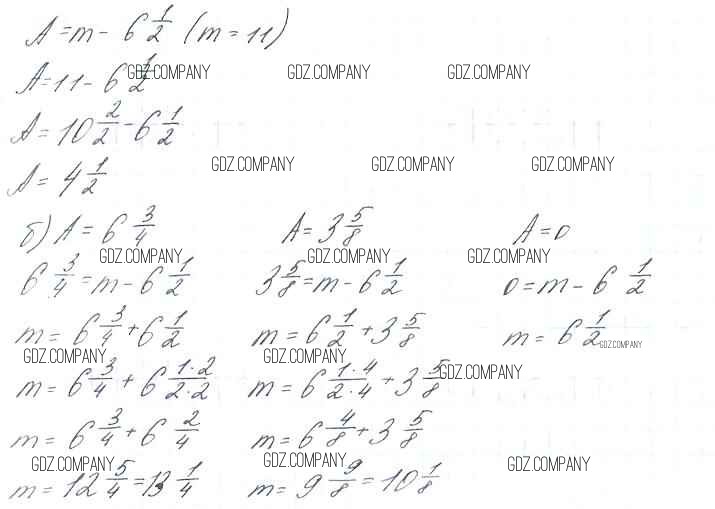 A = m - 6 1/2 (m = 11)
GDZ.COMPANY GDZ.COMPANY GDZ.COMPANY
A = 11 - 6 1/2
A = 10 2/2 - 6 1/2
GDZ.COMPANY GDZ.COMPANY GDZ.COMPANY
A = 4 1/2
б) A = 6 3/4 A = 3 5/8 A = 0
GDZ.COMPANY GDZ.COMPANY GDZ.COMPANY
6 3/4 = m - 6 1/2 3 5/8 = m - 6 1/2 0 = m - 6 1/2
m = 6 3/4 + 6 1/2 m = 6 1/2 + 3 5/8 m = 6 1/2
GDZ.COMPANY GDZ.COMPANY GDZ.COMPANY
m = 6 3/4 + 6 1·2/2·2 m = 6 1·4/2·4 + 3 5/8
GDZ.COMPANY
m = 6 3/4 + 6 2/4 m = 6 4/8 + 3 5/8
GDZ.COMPANY GDZ.COMPANY GDZ.COMPANY
m = 12 5/4 = 13 1/4 m = 9 9/8 = 10 1/8